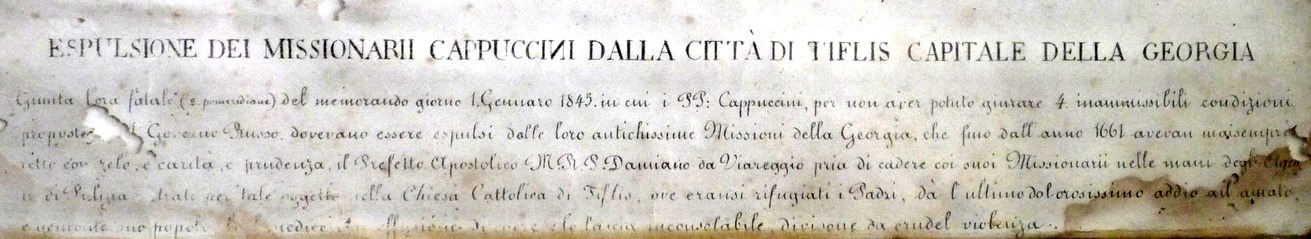 ESPULSIONE DEI MISSIONARII CAPPUCCINI DALLA CITTÀ DI TIFLIS CAPITALE DELLA GEORGIA
Giunta l'ora fatale (2. pomeridiane) del memorando giorno 1. Gennaro 1845. in cui i PP: Cappuccini, per non aver potuto giurare 4. inammissibili condizioni
proposte Governo Russo, dovevano essere espulsi dalle loro antichissime Missioni della Georgia, che fino dall'anno 1661 avevan maisempre
rette con zelo, e carità, e prudenza, il Prefetto Apostolico M.R.P. Damiano da Viareggio pria di cadere coi suoi Missionarii nelle mani degli
di Polizia tale oggetto nella Chiesa Cattolica di Tiflis, ove eransi rifugiati i Padri, dà l'ultimo dolorosissimo addio all'amato,
e gemente suo popolo inconsolabile, divisone da crudel violenza.